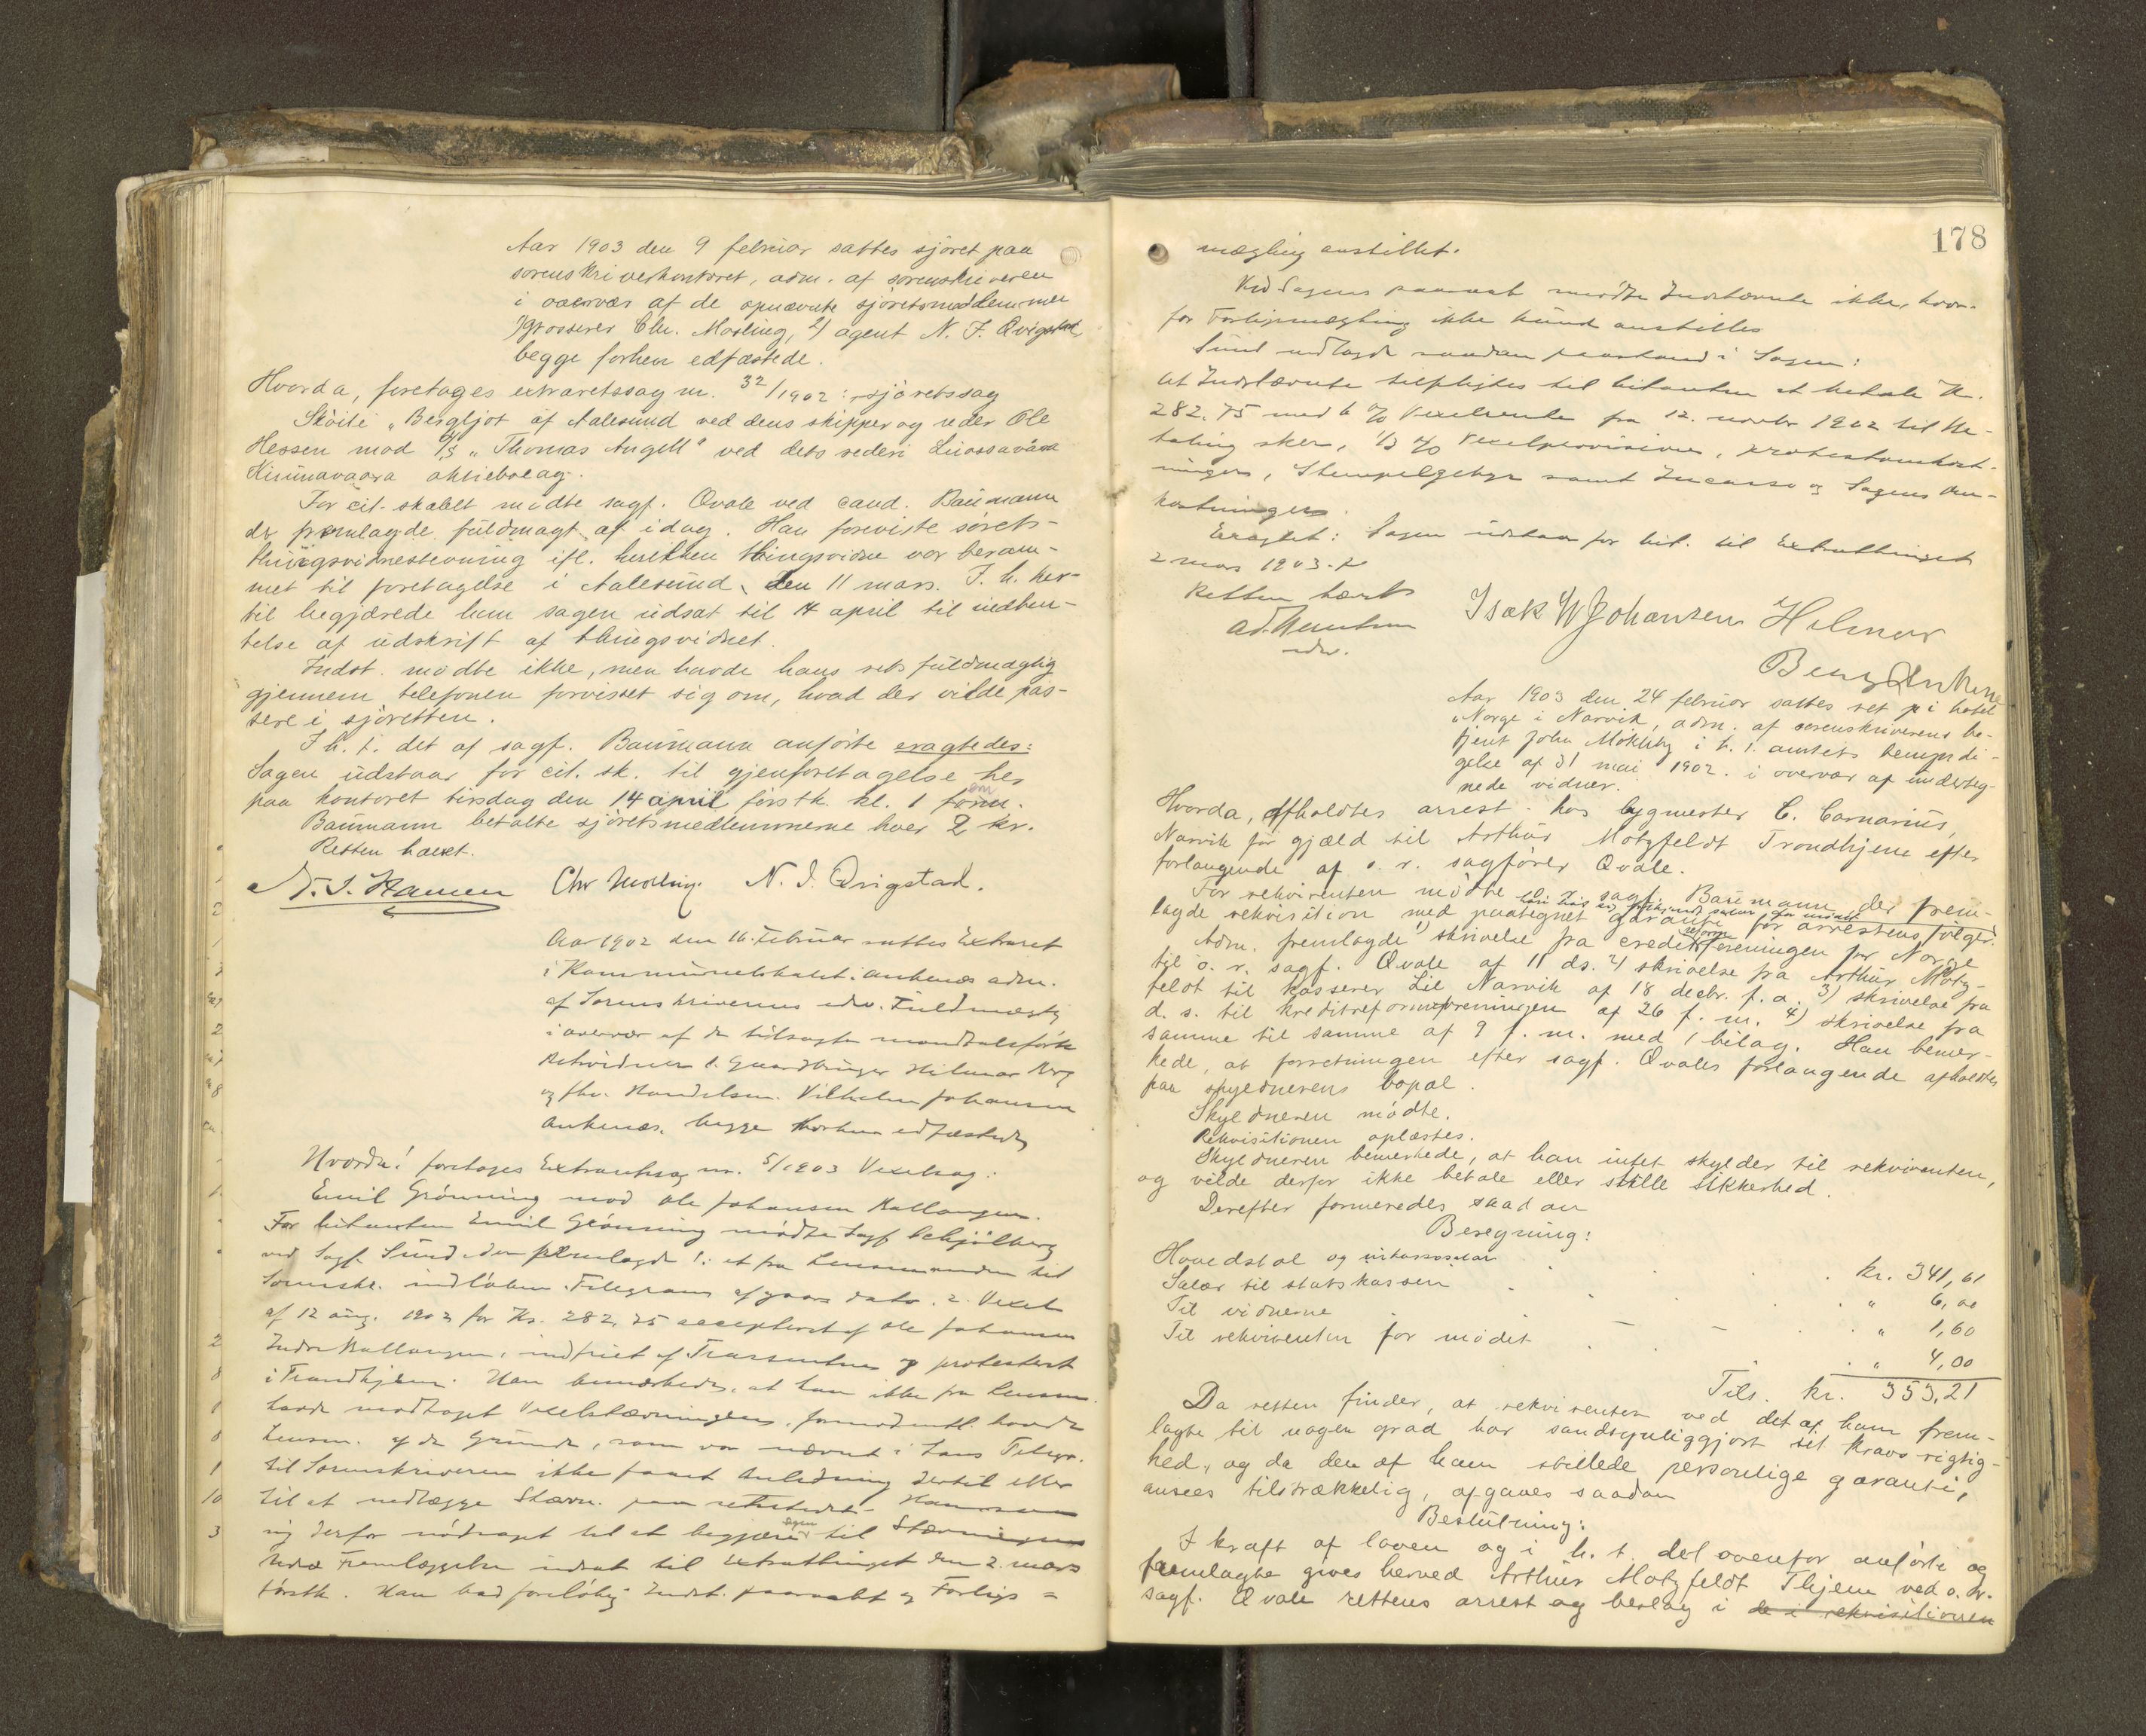 Aar 1903 den 9 februar sattes sjøret paa
sorenskriverkontoret, adm. af sorenskriveren
i overvær af de opnævnte sjøretsmedlemmer
1) grosserer Chr. Mosling, 2) agent N. J. Qvigstad,
begge forhen edfæstede.
Hvorda, foretages extraretssag nr. 32/1902: sjøretssag
Skøite „Bergljot af Aalesund ved dens skipper og reder Ole
Hessen mod D/S „Thomas Angell" ved dets rederi Luossavaara
Kiirunavaara aktiebolag.
For cit. skabet mødte sagf. Qvale ved cand. Baumann
der fremlagde fuldmagt af idag. Han foreviste sørets-
thingsvidnestevning ifl. hvilken thingsvidne var beram-
met til foretagelse i Aalesund den 11 mars. I h. her-
til begjærede han sagen udsat til 14 april til indhen-
telse af udskrift af thingsvidnet.
Indst. mødte ikke, men havde hans rets fuldmægtig
gjennem telefonen forvisset sig om, hvad der vilde pas-
sere i sjøretten.
I h. t. det af sagf. Baumann anførte eragtedes:
Sagen udstaar for cit. sk. til gjenforetagelse her
paa kontoret tirsdag den 14 april førstk. kl. 1 form.
Baumann betalte sjøretsmedlemmerne hver 2 kr.
Retten hævet.
Chr Mosling. N. J. Qvigstad.
Aar 1903 den 16. Februar sattes Extraret
i Kommunelokalet Ankenes adm.
af Sorenskriverens edsv. Fuldmægtig
i overvær af de tilsagte mandtalsførte
Retsvidner 1. Gaardbruger Hilmar Berg
og fhv. Handelsm. Vilhelm Johansen
Ankenæs, begge forhen edfæstede
Hvorda! foretoges Extraretssag nr. 5/1903 Vexelsag:
Emil Grønning mod Ole Johansen Ballangen.
For Citanten Emil Grønning mødte Sagf Schjølberg
ved Sagf. Sund der fremlagde 1: et fra Lensmanden til
Sorenskr. indløben Telegram af gaars dato. 2. Vexel
af 12 aug. 1902 for Kr. 282,75 accepteret af Ole Johansen
Indre Ballangen, indfriet af Trassenten og protesteret
i Trondhjem. Han bemærkede, at han ikke fra Lensm.
havde modtaget Vexelstævningen, formodentl. havde
Lensm. af de Grunde, som var nævnt i hans Telegr.
til Sorenskriveren ikke faaet Anledning dertil eller
til at nedlægge Stævn. paa retsstedet. Han saa
sig derfor nødsaget til at begjære Sagen til Stævningens
Fremlæggelse udsat til Extrathinget den 2. mars
førstk. Han bad foreløbig Indst. paaraabt og Forligs=
178
mægling anstillet.
Ved Sagens paaraab mødte Indstævnte ikke, hvor-
for Forligsmægling ikke kund anstilles
Sund nedlagde saadan paastand i Sagen:
At Indstævnte tilpligtes til Citanten at betale Kr.
282.75 med 6 % Vexelrente fra 12. novbr 1902 til Be-
taling sker, 1/3 % Vexelprovision, protestomkost-
ninger, Stempelgebyr samt Incasso og Sagens Om-
kostninger.
Eragtet: Sagen udstaar for Cit. til Extrathinget
2 mars 1903.
Retten hævet
Isak W Johansen Hilmar
edsv.
Berg Ankenes
Aar 1903 den 24 februar sattes ret på i hotel
„Norge i Narvik, adm. af sorenskriverens be-
tjent John Mökleby i h. t. amtets bemyndi-
gelse af 31 mai 1902. i overvær af underteg-
nede vidner.
Hvorda, afholdtes arrest hos bygmester C. Carnarius,
Narvik for gjæld til Arthur Motzfeldt Trondhjem efter
forlangende af o. r. sagfører Qvale.
For rekvirenten mødte o. r. sagf. Baumann der frem-
lagde rekvisition med paategnet garanti for arrestens følger.
Adm. fremlagde 1) skrivelse fra creditreformforeningen for Norge
til o. r. sagf. Qvale af 11 ds. 2) skrivelse fra Arthur Motz-
feldt til kasserer Lie Narvik af 18 decbr. f. a. 3) skrivelse fra
d. s. til kreditreformforeningen af 26 f. m. 4) skrivelse fra
samme til samme af 9 f. m. med 1 bilag. Han bemær-
kede, at forretningen efter sagf. Qvales forlangende afholdtes
paa skyldnerens bopæl.
Skyldneren mødte.
Rekvisitionen oplæstes.
Skyldneren bemerkede, at han intet skylder til rekvirenten,
og vilde derfor ikke betale eller stille sikkerhed.
Derefter formeredes saadan
Beregning:
Hovedstol og inkassosalær . . . kr. 341,61
Salær til statskassen . . . „ 6,00
Til vidnerne . . . „ 1,60
Til rekvirenten for mødet . . . „ 4,00
Tils. kr. 353,21
Da retten finder, at rekvirenten ved det af ham frem-
lagte til nogen grad har sandsynliggjort sit kravs rigtig-
hed, og da den af ham stillede personlige garanti,
ansees tilstrækkelig, afgaves saadan
Beslutning:
I kraft af loven og i h. t. det ovenfor anførte og
fremlagte gives herved Arthur Motzfeldt Thjem ved o. r.
sagf. Qvale rettens arrest og beslag i de i rekvisitionen